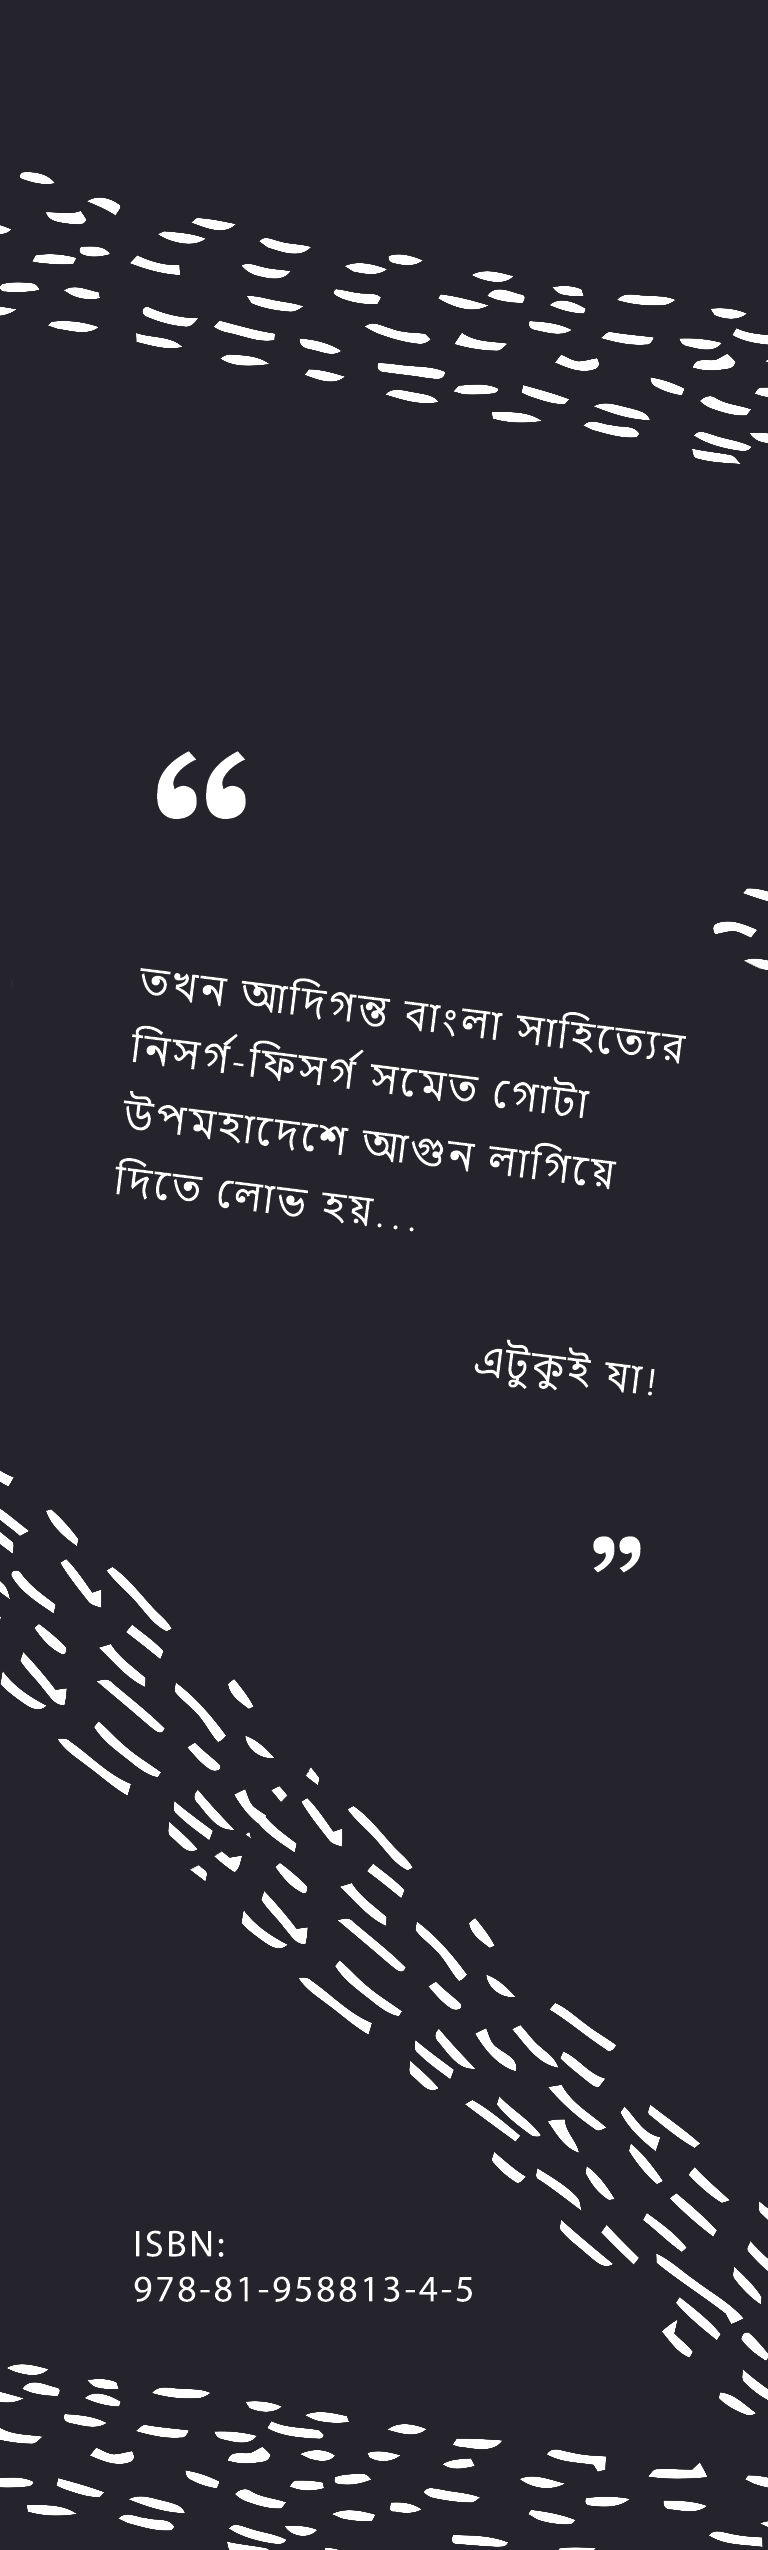 “
তখন আদিগন্ত বাংলা সাহিত্যের
নিসর্গ-ফিসর্গ সমেত গোটা
উপমহাদেশে আগুন লাগিয়ে
দিতে লোভ হয়...
এটুকুই যা!
”
ISBN:
978-81-958813-4-5